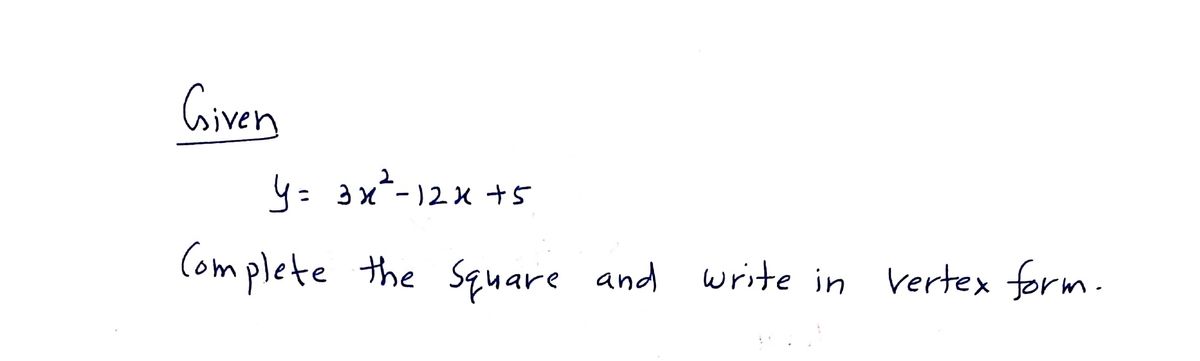 Given
y = 3x² - 12x + 5
Complete the square and write in vertex form.